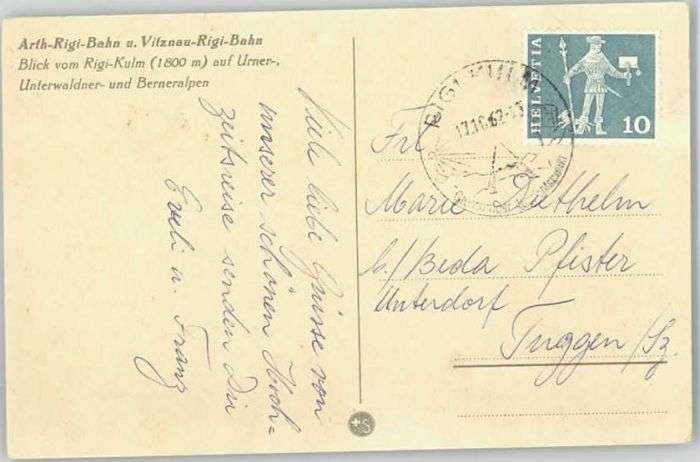 Arth-Rigi-Bahn u. Vitznau-Rigi-Bahn
Blick vom Rigi-Kulm (1800 m) auf Urner-,
Unterwaldner- und Berneralpen
Viele liebe Grüsse von
unserer schönen Hoch-
zeitsreise senden Dir
Eveli u. Franz
RIGI KULM
17.10.62-13
HELVETIA
10
Frl.
Marie Diethelm
b./Beda Pfister
Unterdorf
Tuggen/Sz.
+S